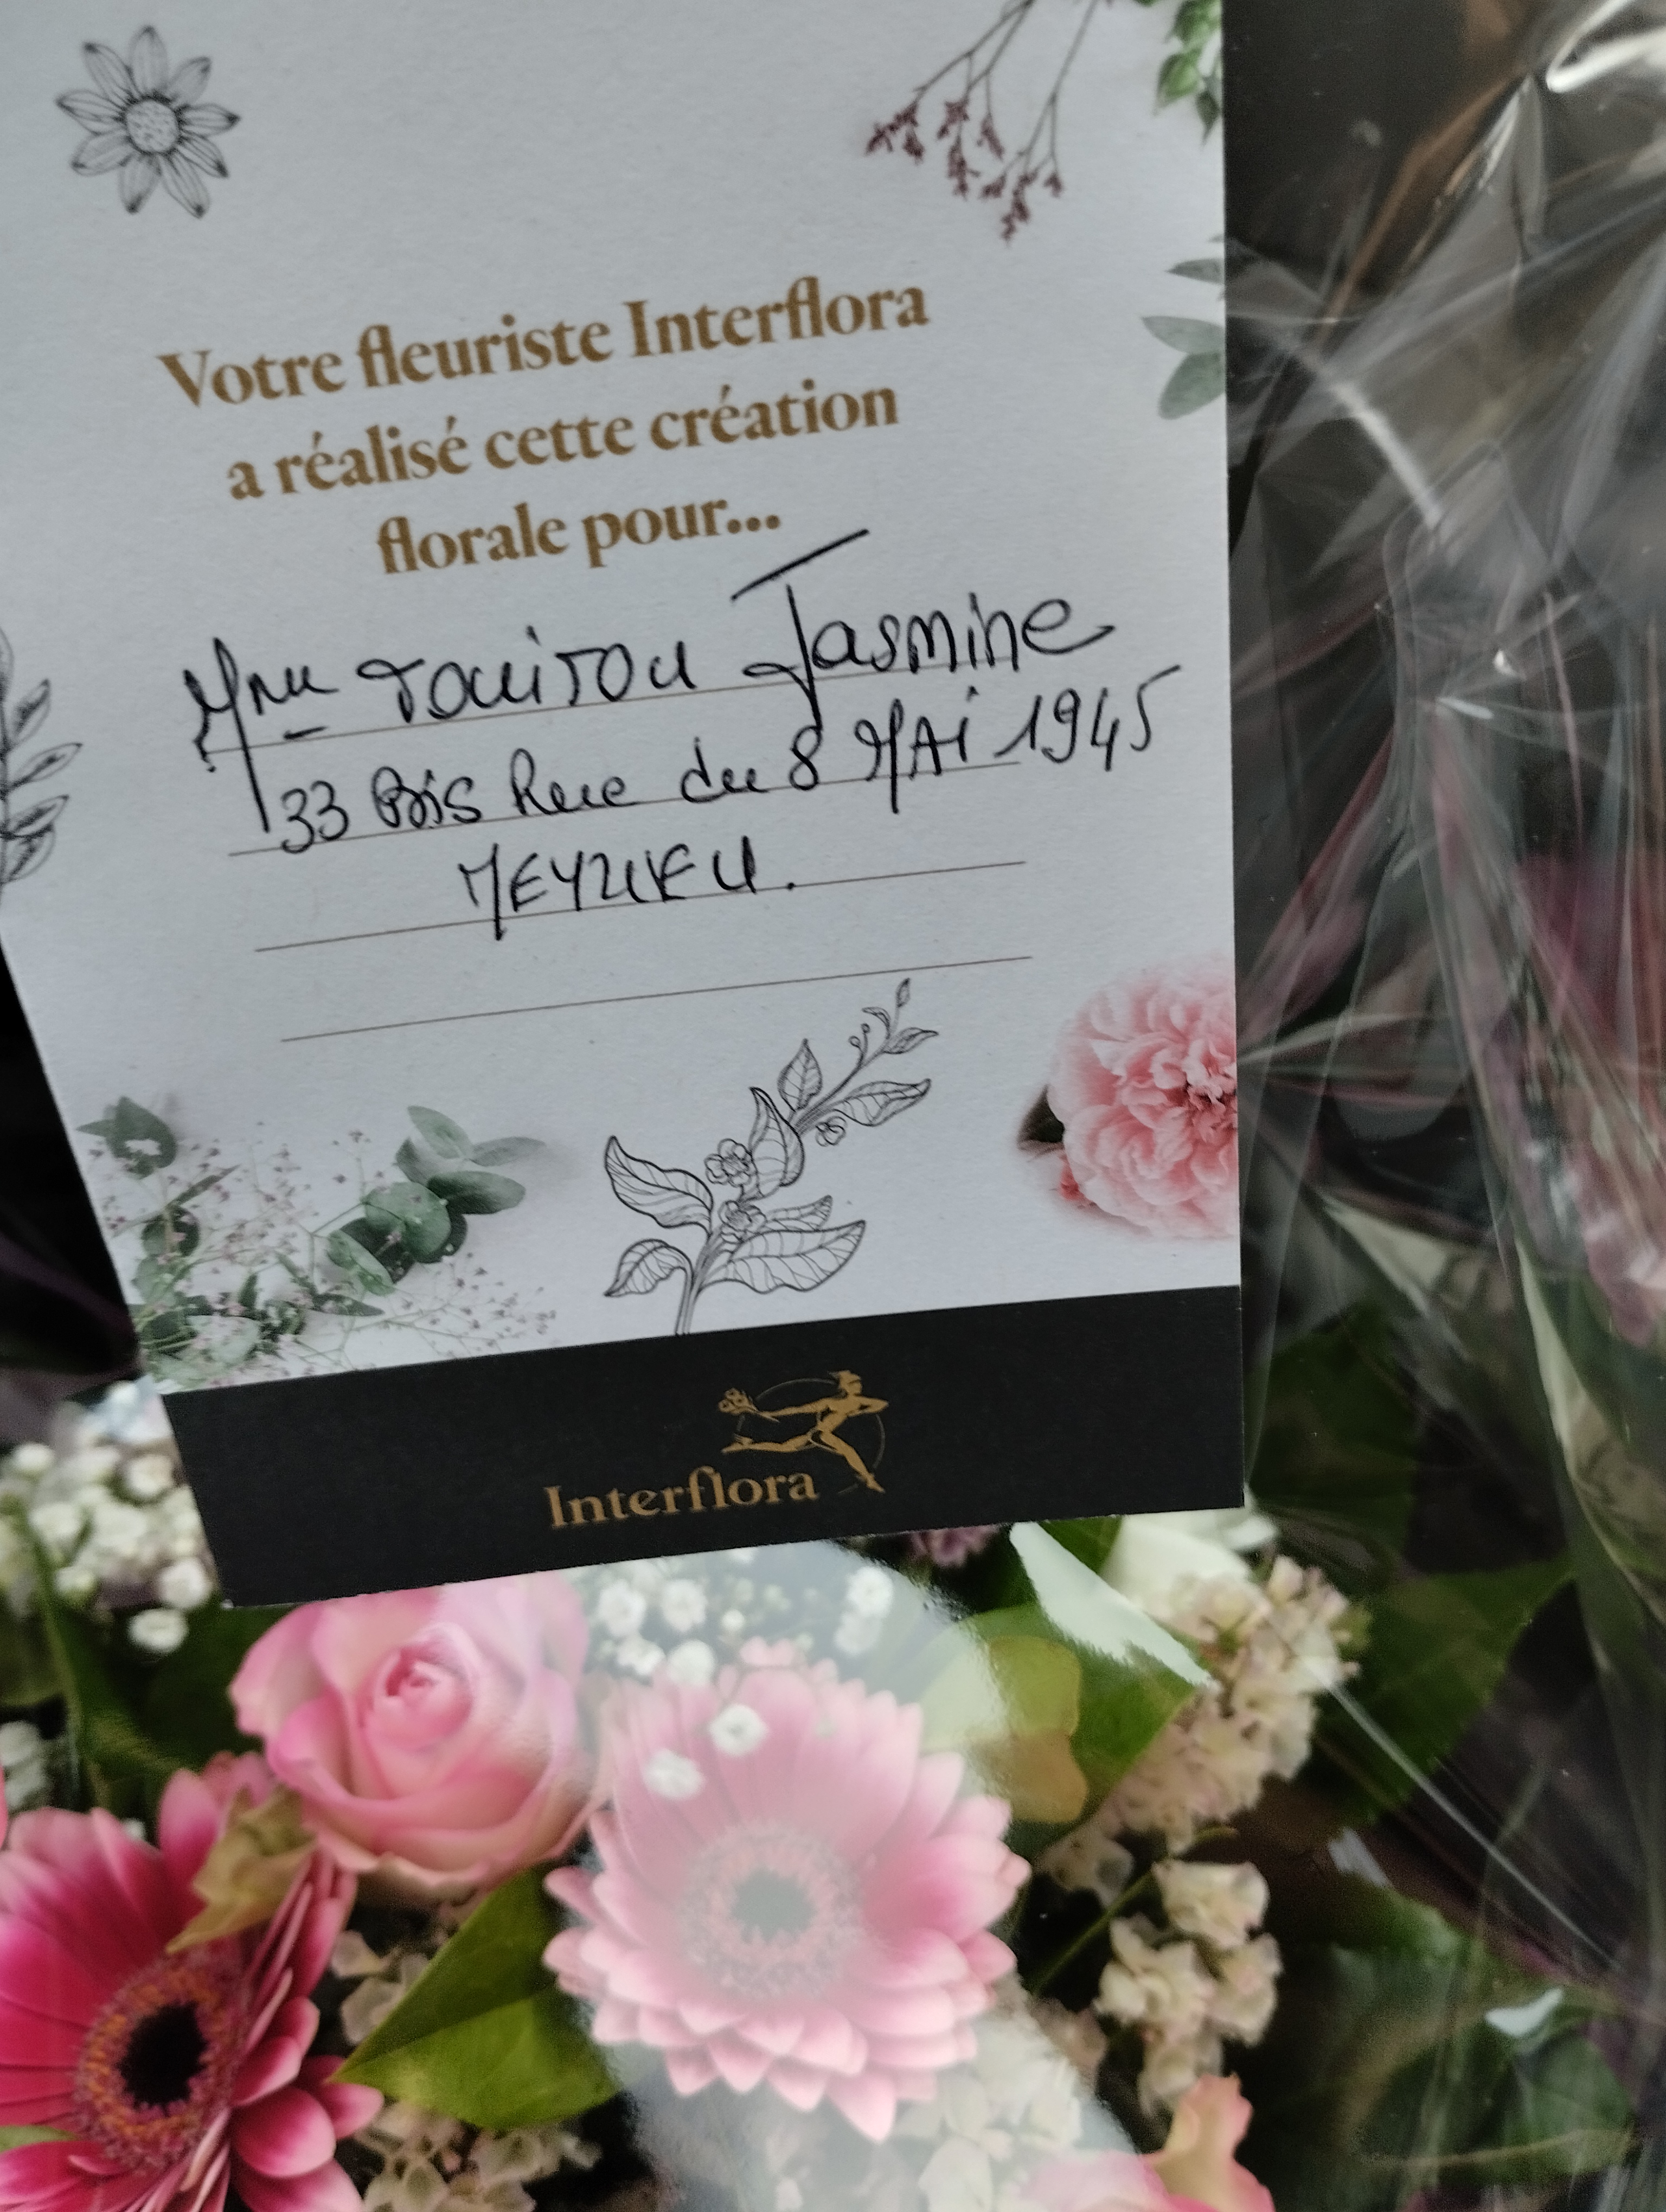 Votre fleuriste Interflora
a réalisé cette création
florale pour...
Mme TOUITOU Jasmine
33 Bis Rue du 8 MAi 1945
MEYZIEU.
Interflora